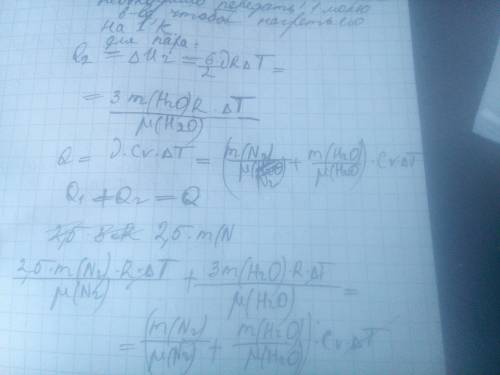 необходимо передать 1 молю
в-ва, чтобы нагреть его
на 1 К.
для пара:
Q₂ = ΔU₂ = 6/2 νRΔT =
= 3m(H₂O)R·ΔT / μ(H₂O)
Q = ν·Cv·ΔT = (m(N₂)/μ(N₂) + m(H₂O)/μ(H₂O))·CvΔT
Q₁ + Q₂ = Q
2,5·m(N
2,5·m(N₂)·R·ΔT / μ(N₂) + 3m(H₂O)·R·ΔT / μ(H₂O) =
= (m(N₂)/μ(N₂) + m(H₂O)/μ(H₂O))·Cv·ΔT